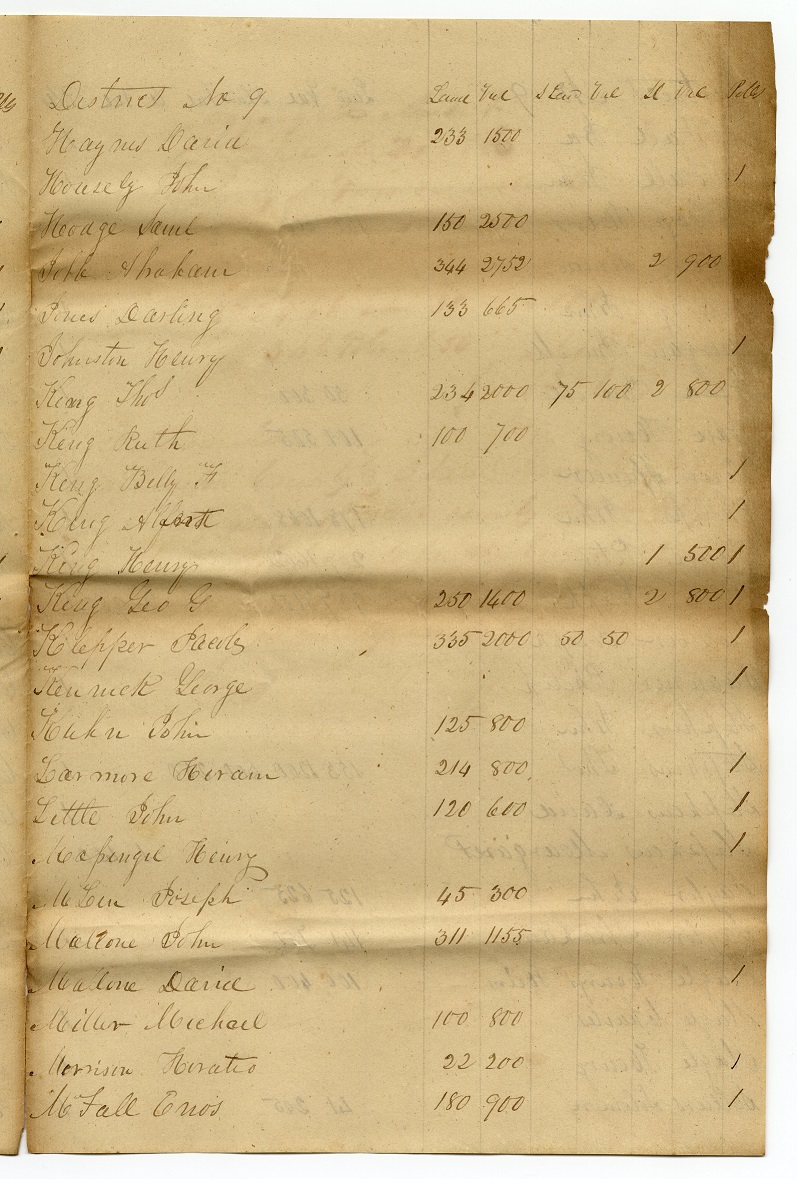 District No 9 Land Val Land Val Sl Val Polls
Haynes David 233 1500
Housely John 1
Hodge Saml 150 2500
Abraham 344 2752 2 900
Jones Darling 133 665
Johnston Henry 1
King Thos 234 2000 75 100 2 800
King Ruth 100 700
King Billy F 1
King 1
King Henry 1 500 1
King Geo G 250 1400 2 800 1
Klepper Jacob 335 2000 50 50 1
George 1
John 125 800
Larmore Hiram 214 800 1
Little John 120 600 1
Massengil Henry 1
McLin Joseph 45 300
Malone John 311 1155
Malone David 1
Miller Michael 100 800
Morrison Horatio 22 200 1
McFall Enos 180 900 1